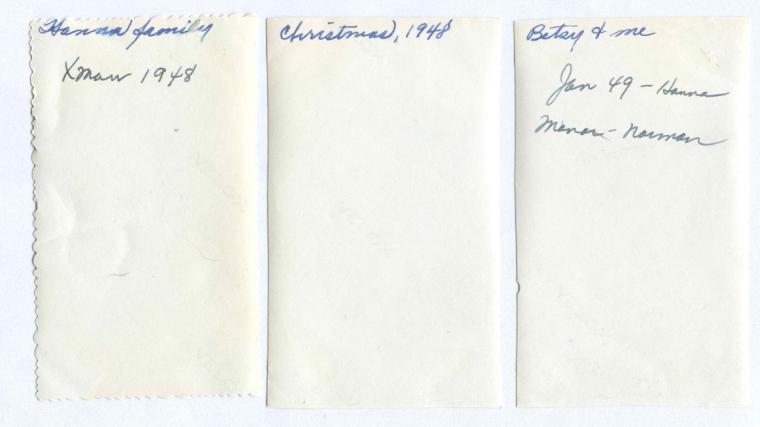 Hanna family
Xmas 1948
Christmas, 1948
Betsy & me
Jan 49 – Hanna
Manor – Norman
VELOX
VELOX